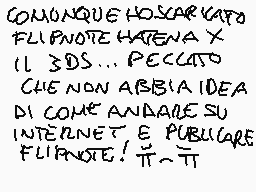 COMUNQUE HO SCARICATO
FLIPNOTE HATENA X
IL 3DS... PECCATO
CHE NON ABBIA IDEA
DI COME ANDARE SU
INTERNET E PUBLICARE
FLIPNOTE! π_π